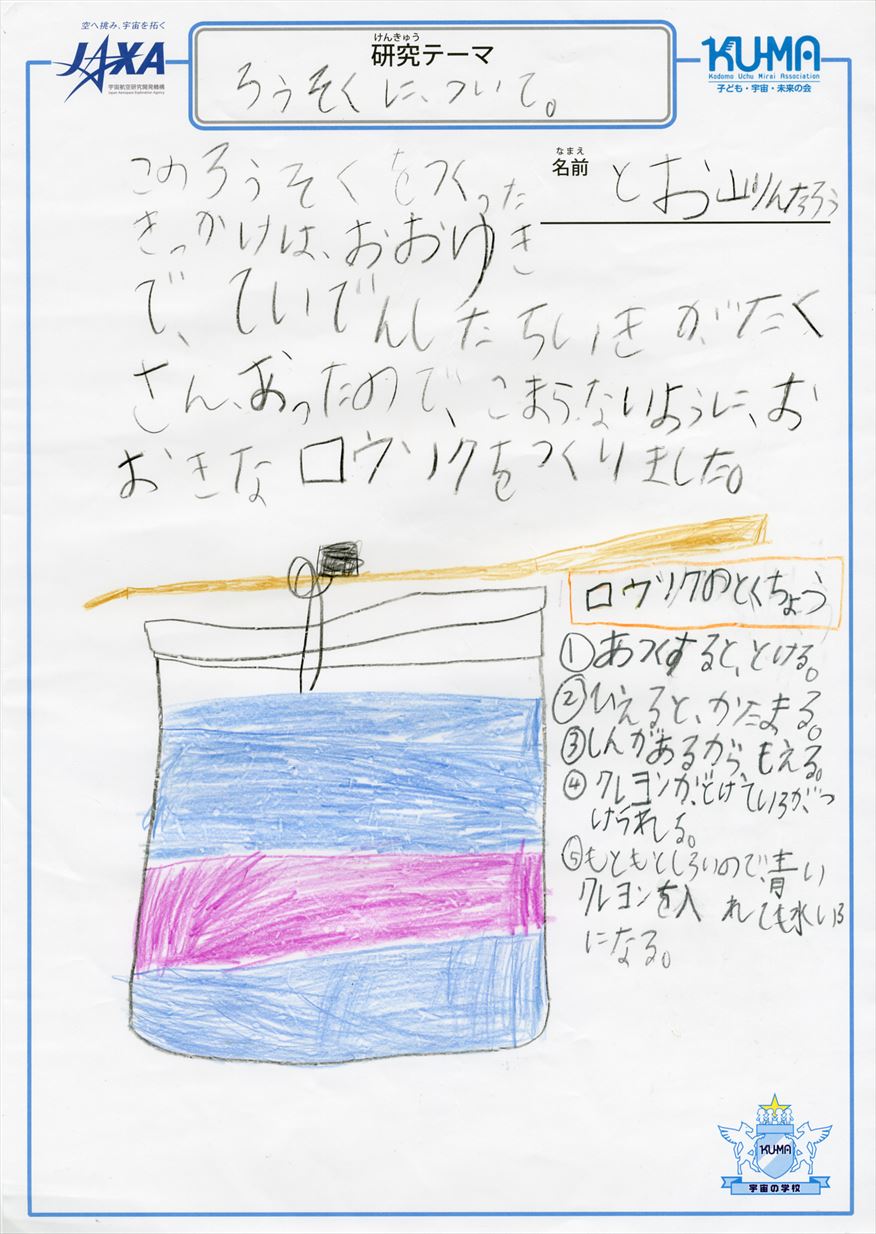 空へ挑み、宇宙を拓く
JAXA
宇宙航空研究開発機構
Japan Aerospace Exploration Agency
けんきゅう
研究テーマ
ろうそくに、ついて。
KU-MA
Kodomo Uchu Mirai Association
子ども・宇宙・未来の会
なまえ
名前
とお山りんたろう
このろうそくをつくった
きっかけは、おおゆき
で、ていでんしたちいきが、たく
さん、あったので、こまらないように、お
おきなロウソクをつくりました。
ロウソクのとくちょう
①あつくすると、とける。
②ひえると、かたまる。
③しんがあるから、もえる。
④クレヨンが、とけていろが、つ
けられる。
⑤もともとしろいので、青い
クレヨンを入れても水いろ
になる。
KU-MA
宇宙の学校